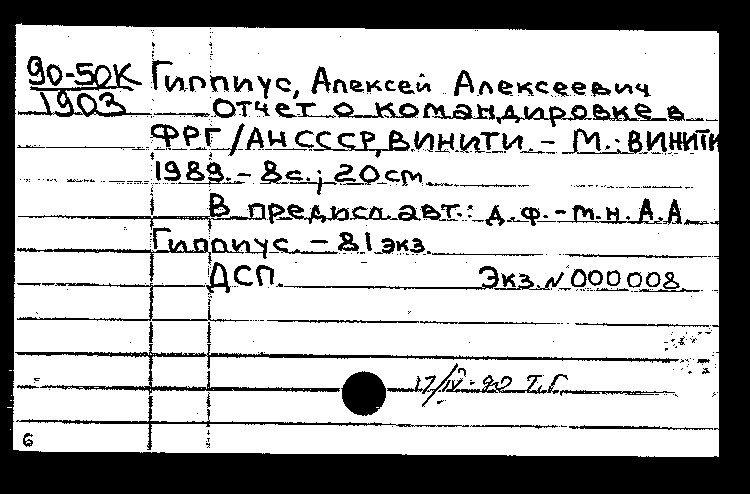 90-50К Гиппиус, Алексей Алексеевич
1903 Отчет о командировке в
ФРГ/АН СССР, ВИНИТИ. - М.: ВИНИТИ
1989. - 8с.; 20см
В предисл. авт.: д.ф.-м.н. А.А.
Гиппиус. - 81экз.
ДСП. Экз. N 000008
17/IV-90 Т.Г.
6